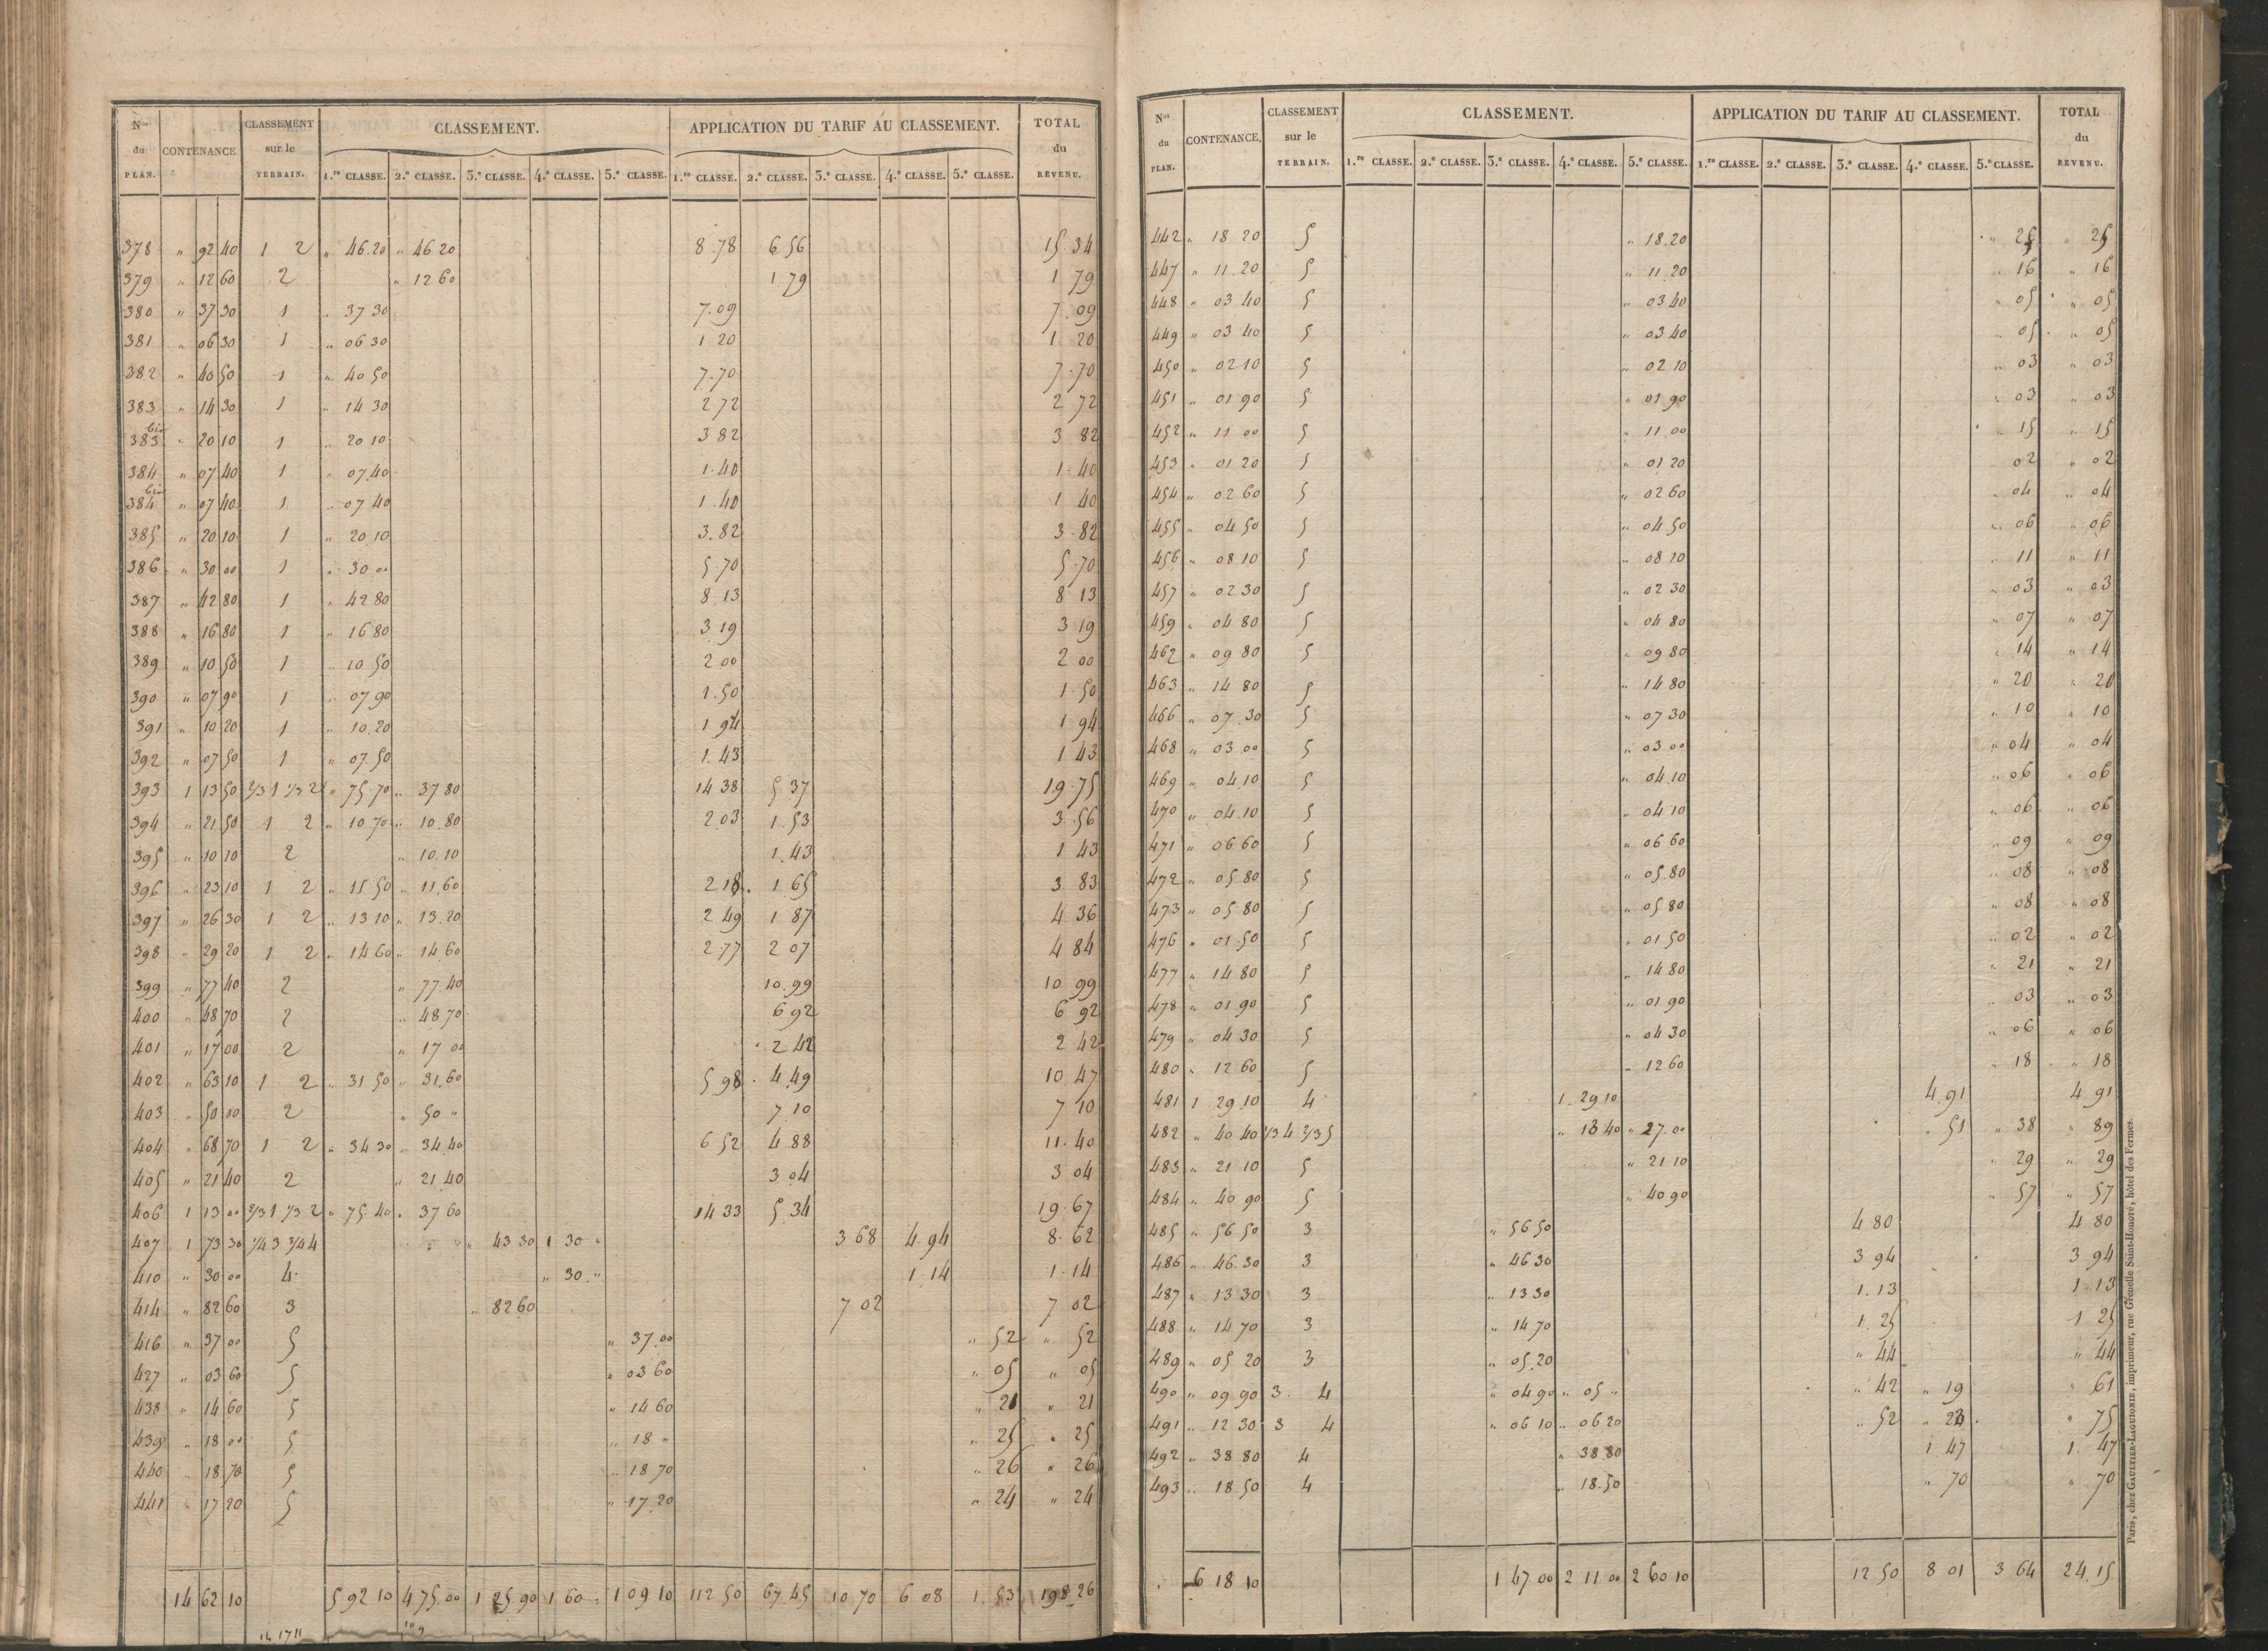 N.os du PLAN. CONTENANCE. CLASSEMENT sur le TERRAIN. CLASSEMENT. APPLICATION DU TARIF AU CLASSEMENT. TOTAL du REVENU.
1.re CLASSE. 2.e CLASSE. 3.e CLASSE. 4.e CLASSE. 5.e CLASSE. 1.re CLASSE. 2.e CLASSE. 3.e CLASSE. 4.e CLASSE. 5.e CLASSE.
378 " 92 40 1 2 " 46.20 " 46 20 8.78 6 56 15.34
379 " 12 60 2 " 12 60 1.79 1 79
380 " 37 30 1 " 37 30 7.09 7.09
381 " 06 30 1 " 06 30 1 20 1 20
382 " 40 50 1 " 40 50 7.70 7.70
383 " 14 30 1 " 14 30 2 72 2 72
383 bis " 20 10 1 " 20 10 3 82 3 82
384 " 07 40 1 " 07.40 1.40 1.40
384 bis " 07 40 1 " 07 40 1.40 1 40
385 " 20 10 1 " 20 10 3.82 3.82
386 " 30 00 1 " 30 00 5.70 5.70
387 " 42 80 1 " 42 80 8 13 8 13
388 " 16 80 1 " 16 80 3 19 3 19
389 " 10 50 1 " 10 50 2 00 2 00
390 " 07 90 1 " 07 90 1.50 1.50
391 " 10 20 1 " 10.20 1 94 1 94
392 " 07 50 1 " 07.50 1.43 1 43
393 1 13 50 2/3 1 1/3 2 " 75.70 " 37 80 14 38 5 37 19.75
394 " 21 50 1 2 " 10 70 " 10.80 2 03 1.53 3.56
395 " 10 10 2 " 10.10 1.43 1 43
396 " 23 10 1 2 " 11 50 " 11.60 2 18 1 65 3 83
397 " 26 30 1 2 " 13 10 " 13.20 2 49 1 87 4 36
398 " 29 20 1 2 " 14 60 " 14 60 2.77 2 07 4 84
399 " 77 40 2 " 77.40 10.99 10 99
400 " 48 70 2 " 48 70 6 92 6 92
401 " 17 00 2 " 17 00 2 42 2 42
402 " 63 10 1 2 " 31 50 " 31.60 5 98 4.49 10 47
403 " 50 00 2 " 50 " 7 10 7 10
404 " 68 70 1 2 " 34 30 " 34.40 6 52 4.88 11.40
405 " 21 40 2 " 21 40 3 04 3 04
406 1 13 00 2/3 1 1/3 2 " 75 40 " 37 60 14 33 5.34 19.67
407 1 73 30 1/4 3 3/4 4 " 43 30 1 30 " 3 68 4.94 8.62
410 " 30 00 4 " 30 " 1.14 1.14
414 " 82 60 3 " 82 60 7 02 7 02
416 " 37 00 5 " 37.00 " 52 " 52
427 " 03 60 5 " 03 60 " 05 " 05
438 " 14 60 5 " 14 60 " 21 " 21
439 " 18 00 5 " 18 " " 25 " 25
440 " 18 70 5 " 18 70 " 26 " 26
441 " 17 20 5 " 17.20 " 24 " 24
14 62 10 5 92 10 4 75.00 1 25 90 1 60 " 1 09 10 112.50 67.45 10 70 6 08 1.53 198.26
N.os du PLAN. CONTENANCE. CLASSEMENT sur le TERRAIN. CLASSEMENT. APPLICATION DU TARIF AU CLASSEMENT. TOTAL du REVENU.
1.re CLASSE. 2.e CLASSE. 3.e CLASSE. 4.e CLASSE. 5.e CLASSE. 1.re CLASSE. 2.e CLASSE. 3.e CLASSE. 4.e CLASSE. 5.e CLASSE.
442 " 18 20 5 " 18.20 " 25 " 25
447 " 11.20 5 " 11.20 " 16 " 16
448 " 03 40 5 " 03 40 " 05 " 05
449 " 03 40 5 " 03 40 " 05 " 05
450 " 02 10 5 " 02 10 " 03 " 03
451 " 01 90 5 " 01 90 " 03 " 03
452 " 11 00 5 " 11 00 " 15 " 15
453 " 01 20 5 " 01 20 " 02 " 02
454 " 02 60 5 " 02 60 " 04 " 04
455 " 04 50 5 " 04 50 " 06 " 06
456 " 08 10 5 " 08 10 " 11 " 11
457 " 02 30 5 " 02 30 " 03 " 03
459 " 04 80 5 " 04 80 " 07 " 07
462 " 09 80 5 " 09 80 " 14 " 14
463 " 14 80 5 " 14 80 " 20 " 20
466 " 07.30 5 " 07 30 " 10 " 10
468 " 03 00 5 " 03 00 " 04 " 04
469 " 04.10 5 " 04.10 " 06 " 06
470 " 04.10 5 " 04 10 " 06 " 06
471 " 06 60 5 " 06 60 " 09 " 09
472 " 05.80 5 " 05.80 " 08 " 08
473 " 05 80 5 " 05 80 " 08 " 08
476 " 01 50 5 " 01 50 " 02 " 02
477 " 14 80 5 " 14 80 " 21 " 21
478 " 01 90 5 " 01 90 " 03 " 03
479 " 04 30 5 " 04 30 " 06 " 06
480 " 12 60 5 " 12 60 " 18 " 18
481 1 29.10 4 1.29 10 4.91 4 91
482 " 40 40 1/3 4 2/3 5 " 13 40 " 27.00 " 51 " 38 " 89
483 " 21 10 5 " 21 10 " 29 " 29
484 " 40 90 5 " 40 90 " 57 " 57
485 " 56 50 3 " 56 50 4 80 4 80
486 " 46.30 3 " 46 30 3 94 3 94
487 " 13 30 3 " 13 30 1.13 1 13
488 " 14 70 3 " 14 70 1.25 1 25
489 " 05 20 3 " 05.20 " 44 " 44
490 " 09 90 3 4 " 04 90 " 05 " " 42 " 19 " 61
491 " 12 30 3 4 " 06 10 " 06 20 " 52 " 23 " 75
492 " 38 80 4 " 38 80 1 47 1.47
493 " 18.50 4 " 18.50 " 70 " 70
6 18 10 1 47 00 2 11 00 2 60 10 12 50 8 01 3 64 24.15
Paris, chez GAULTIER-LAGUIONIE, imprimeur, rue Grenelle Saint-Honoré, hôtel des Fermes.